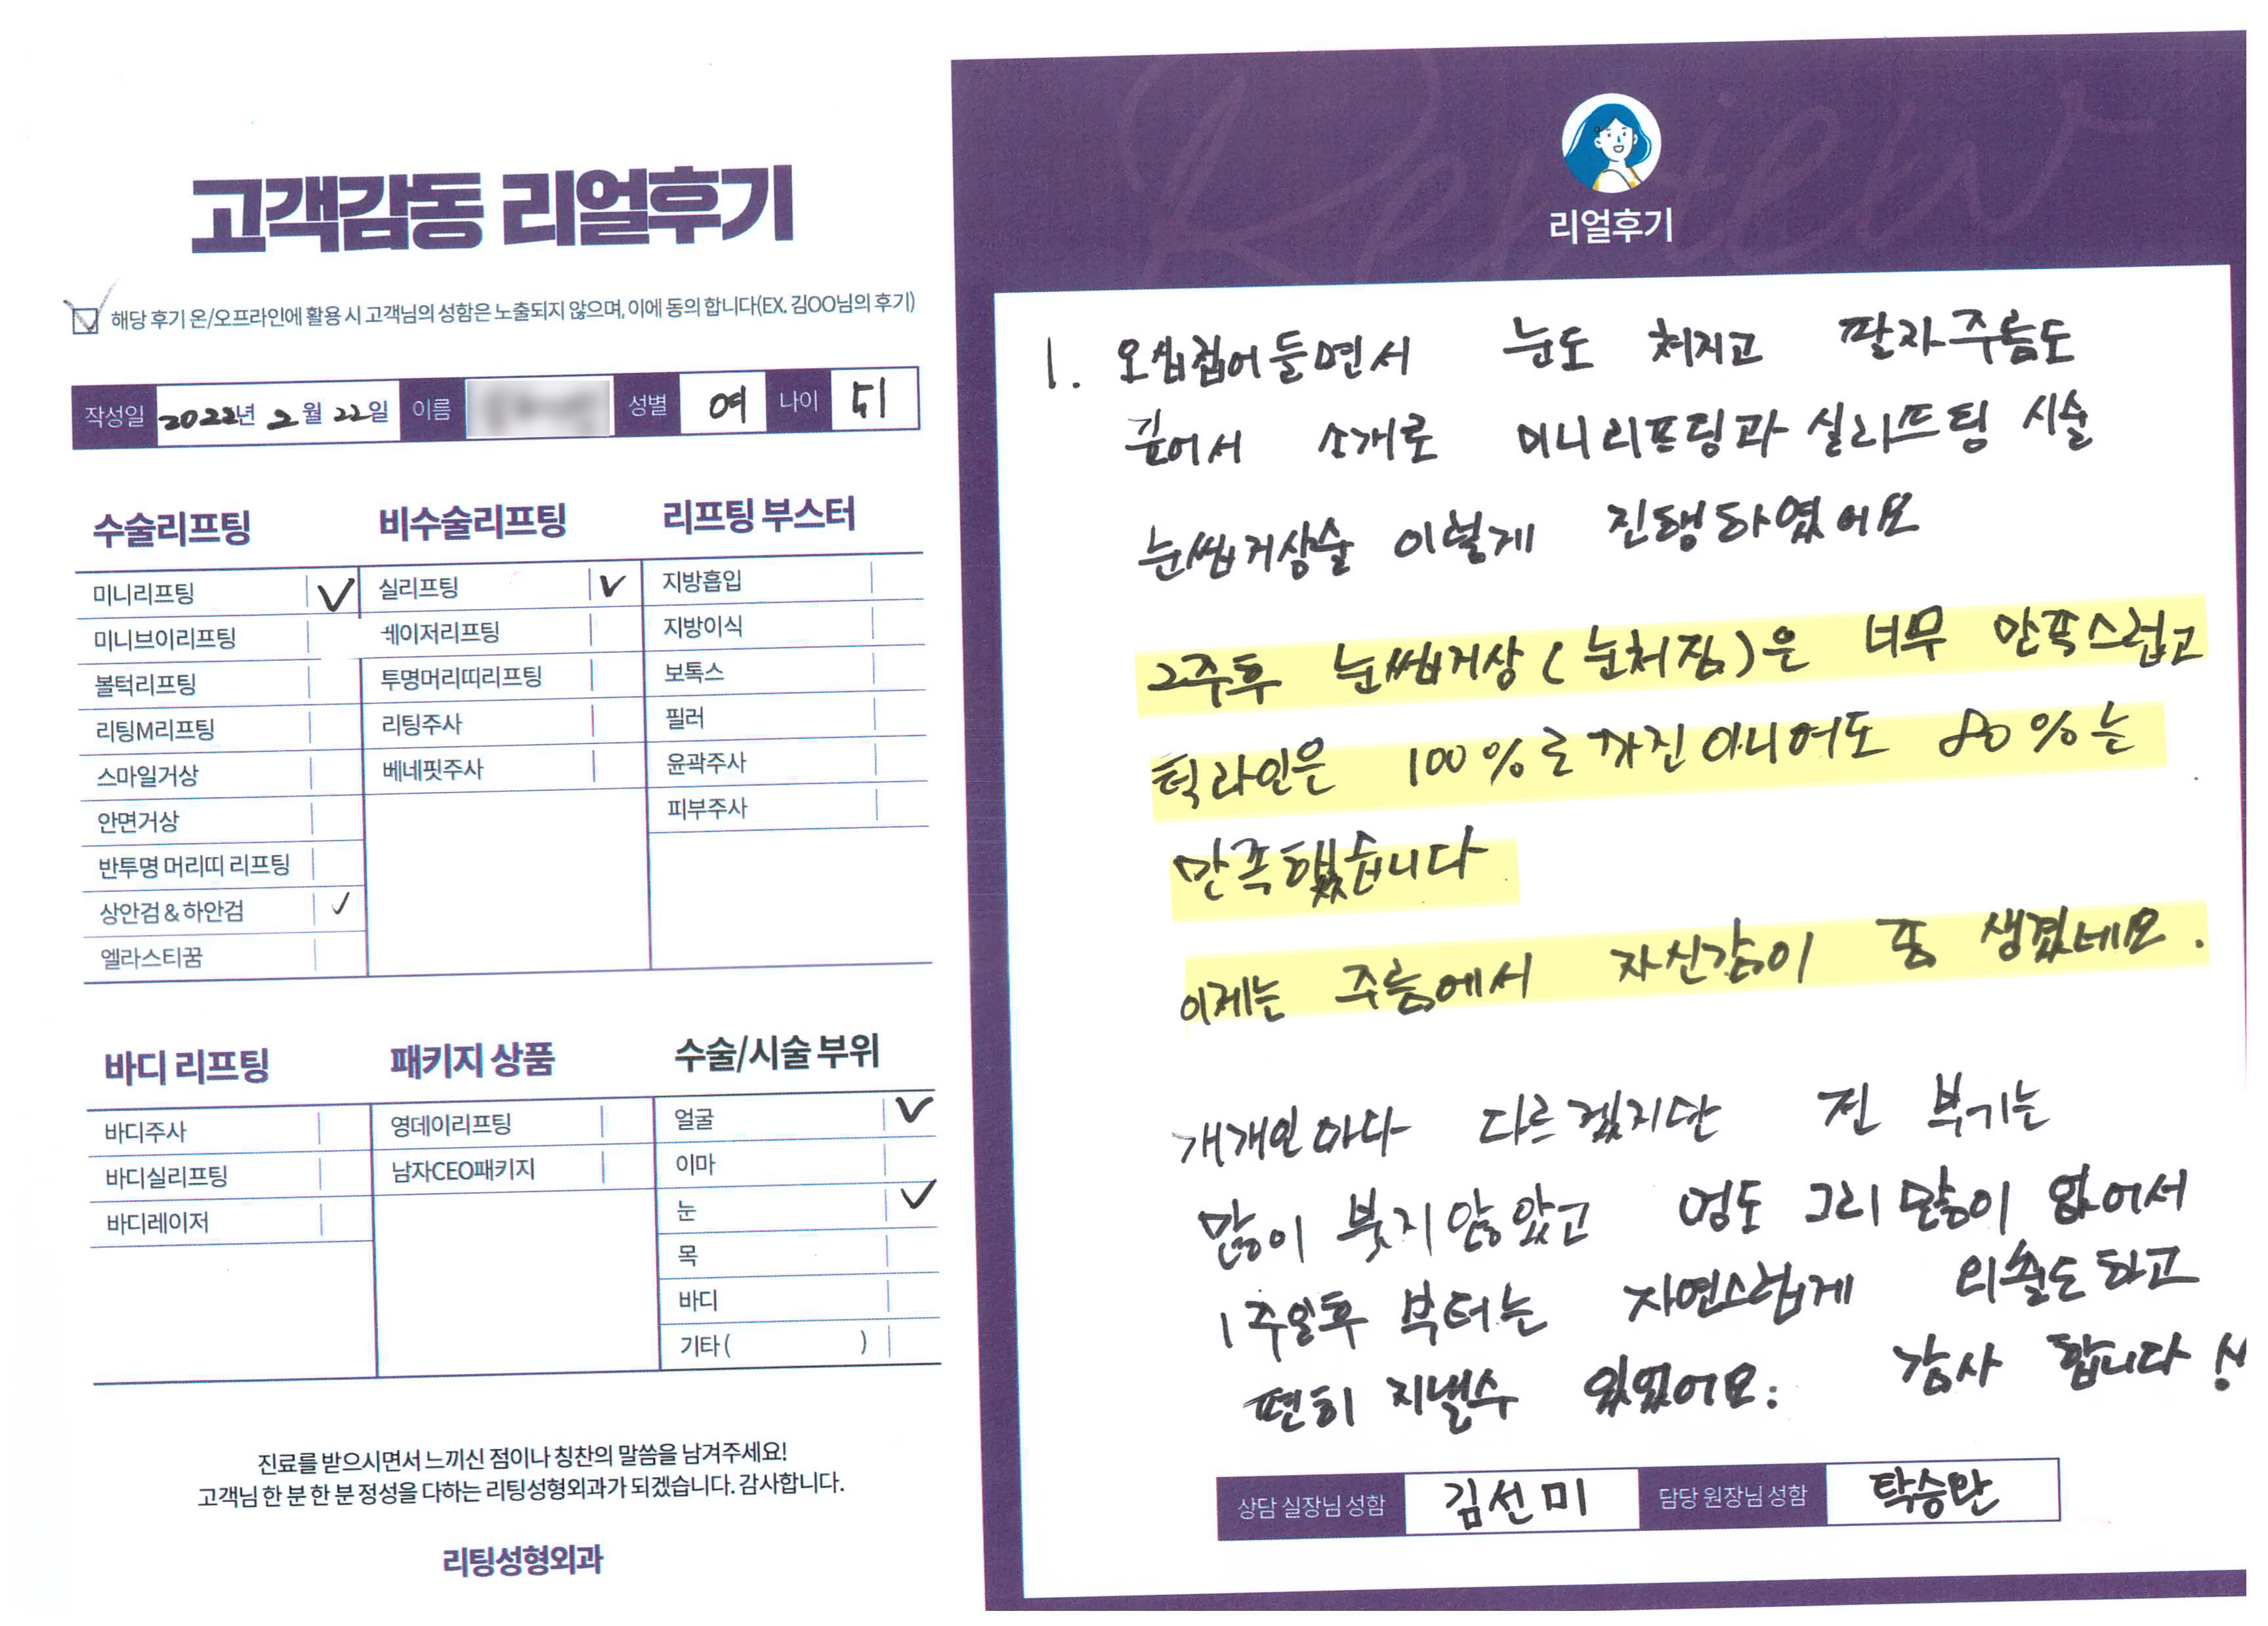 고객감동 리얼후기
해당 후기 온/오프라인에 활용 시 고객님의 성함은 노출되지 않으며, 이에 동의 합니다(EX. 김OO님의 후기)
작성일 2022년 2월 22일 이름 성별 여 나이 51
수술리프팅
미니리프팅
미니브이리프팅
볼턱리프팅
리팅M리프팅
스마일거상
안면거상
반투명 머리띠 리프팅
상안검 & 하안검
엘라스티꿈
비수술리프팅
실리프팅
레이저리프팅
투명머리띠리프팅
리팅주사
베네핏주사
리프팅 부스터
지방흡입
지방이식
보톡스
필러
윤곽주사
피부주사
바디 리프팅
바디주사
바디실리프팅
바디레이저
패키지 상품
영데이리프팅
남자CEO패키지
수술/시술 부위
얼굴
이마
눈
목
바디
기타 ( )
진료를 받으시면서 느끼신 점이나 칭찬의 말씀을 남겨주세요!
고객님 한 분 한 분 정성을 다하는 리팅성형외과가 되겠습니다. 감사합니다.
리팅성형외과
Review
리얼후기
1. 오십접어들면서 눈도 처지고 팔자주름도
깊어서 소개로 미니리프팅과 실리프팅 시술
눈썹거상술 이렇게 진행하였어요
2주후 눈썹거상(눈처짐)은 너무 만족스럽고
턱라인은 100%로까진 아니어도 80%는
만족했습니다
이제는 주름에서 자신감이 뿜 생겼네요.
개개인마다 다르겠지만 전 부기는
많이 붓지않았고 멍도 그리많이 없어서
1주일후 부터는 자연스럽게 외출도하고
편히 지낼수 있었어요: 감사 합니다!
상담 실장님 성함 김선미 담당 원장님 성함 탁승안